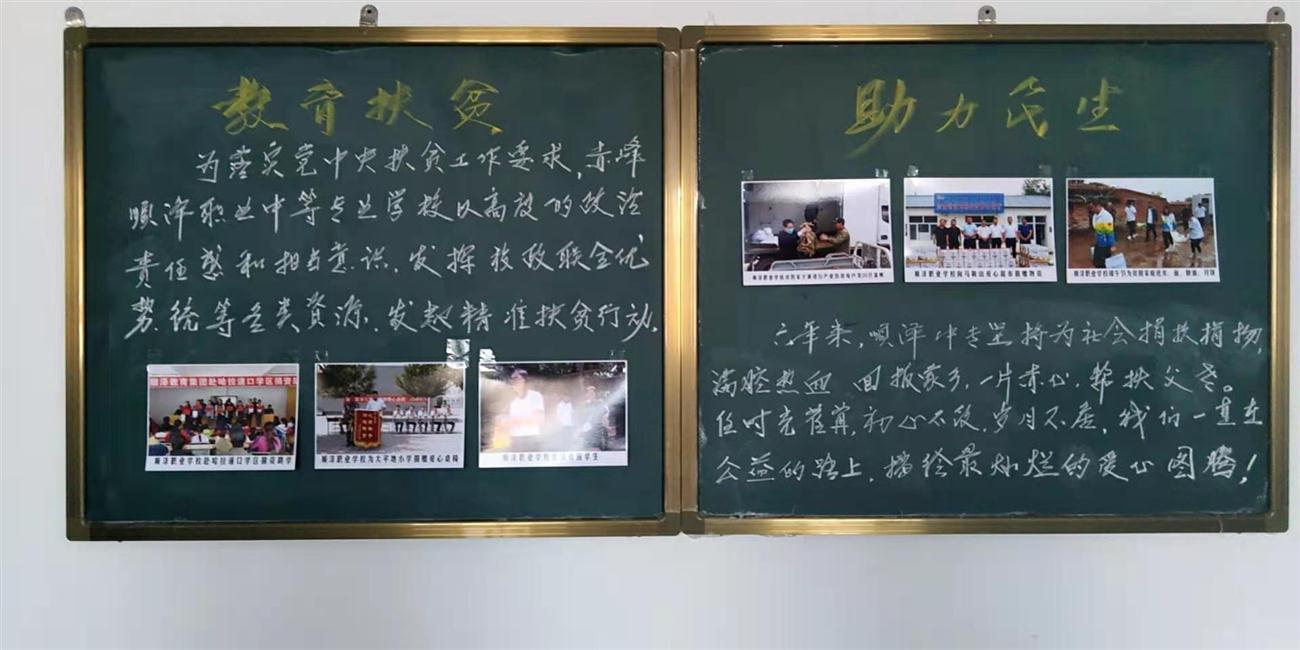 教育扶贫
为落实党中央扶贫工作要求,赤峰
顺泽职业中等专业学校以高度的政治
责任感和担当意识,发挥校政联合优
势,统筹各类资源,发起精准扶贫行动.
顺泽教育集团赴哈拉道口学区捐资
顺泽职业学校赴哈拉道口学区捐资助学
顺泽职业学校为太平地小学捐赠爱心桌椅
顺泽职业学校
学生
助力民生
顺泽职业学校向马鞍山爱心超市捐赠物资
六年来,顺泽中专坚持为社会捐款捐物,
满腔热血 回报家乡,一片赤心,帮扶父老。
任时光荏苒,初心不改,岁月不居,我们一直在
公益的路上,描绘最灿烂的爱心图腾!